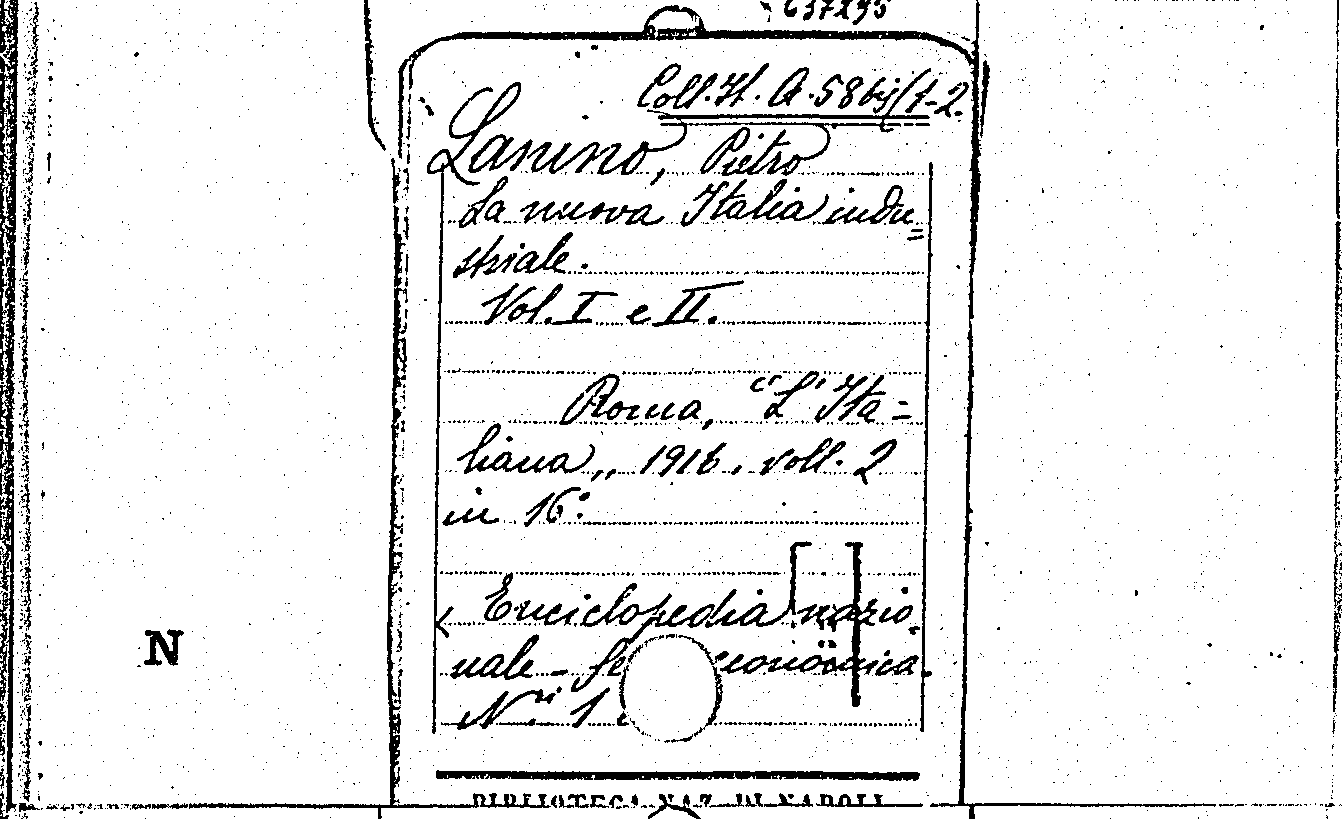 637295
Coll. It. A. 58 bis/1-2.
Lanino, Pietro
La nuova Italia indu=
striale.
Vol. I e II.
Roma, "L'Ita=
liana,, 1916, voll. 2
in 16°.
Enciclopedia nazio
nale - economica.
N.ri 1
N
BIBLIOTECA NAZ. DI NAPOLI